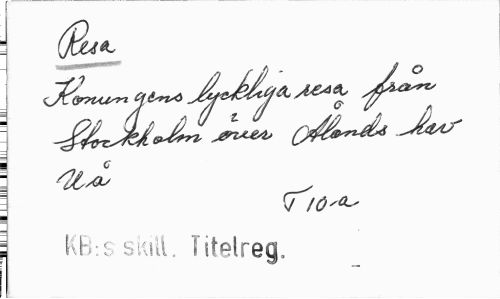 Resa
Konungens lyckliga resa från
Stockholm över Ålands hav
U å
T 10-a
KB:s skill. Titelreg.